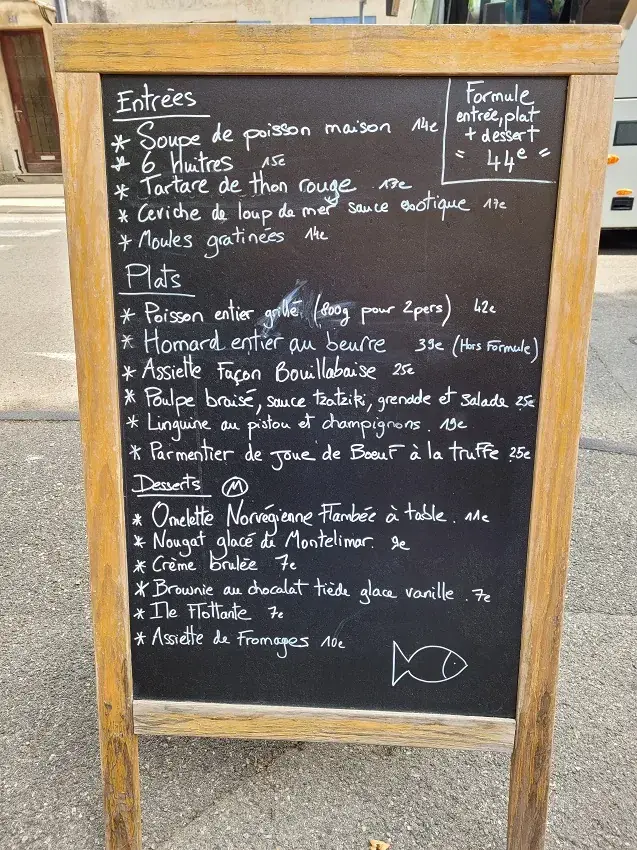 Entrées
* Soupe de poisson maison 14€
* 6 Huitres 15€
* Tartare de thon rouge. 17€
* Ceviche de loup de mer sauce exotique 17€
* Moules gratinées 14€
Formule
entrée, plat
+ dessert
" 44€ "
Plats
* Poisson entier grillé (800g pour 2pers) 42€
* Homard entier au beurre 39€ (Hors Formule)
* Assiette Façon Bouillabaise 25€
* Poulpe braisé, sauce tzatziki, grenade et salade 25€
* Linguine au pistou et champignons. 19€
* Parmentier de joue de Boeuf à la truffe 25€
Desserts M
* Omelette Norvégienne Flambée à table. 11€
* Nougat glacé de Montelimar. 9€
* Crème brulée 7€
* Brownie au chocalat tiède glace vanille. 7€
* Ile Flottante 7€
* Assiette de Fromages 10€